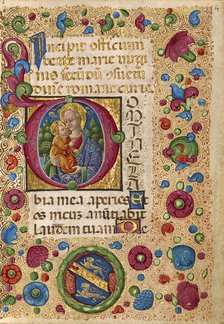 Incipit officium
beate marie virgi
nis secūdū cōsuetu
dinē romane curie
DOMINE LA
bia mea aperies Et
os meum anūtiabit
laudem tuam